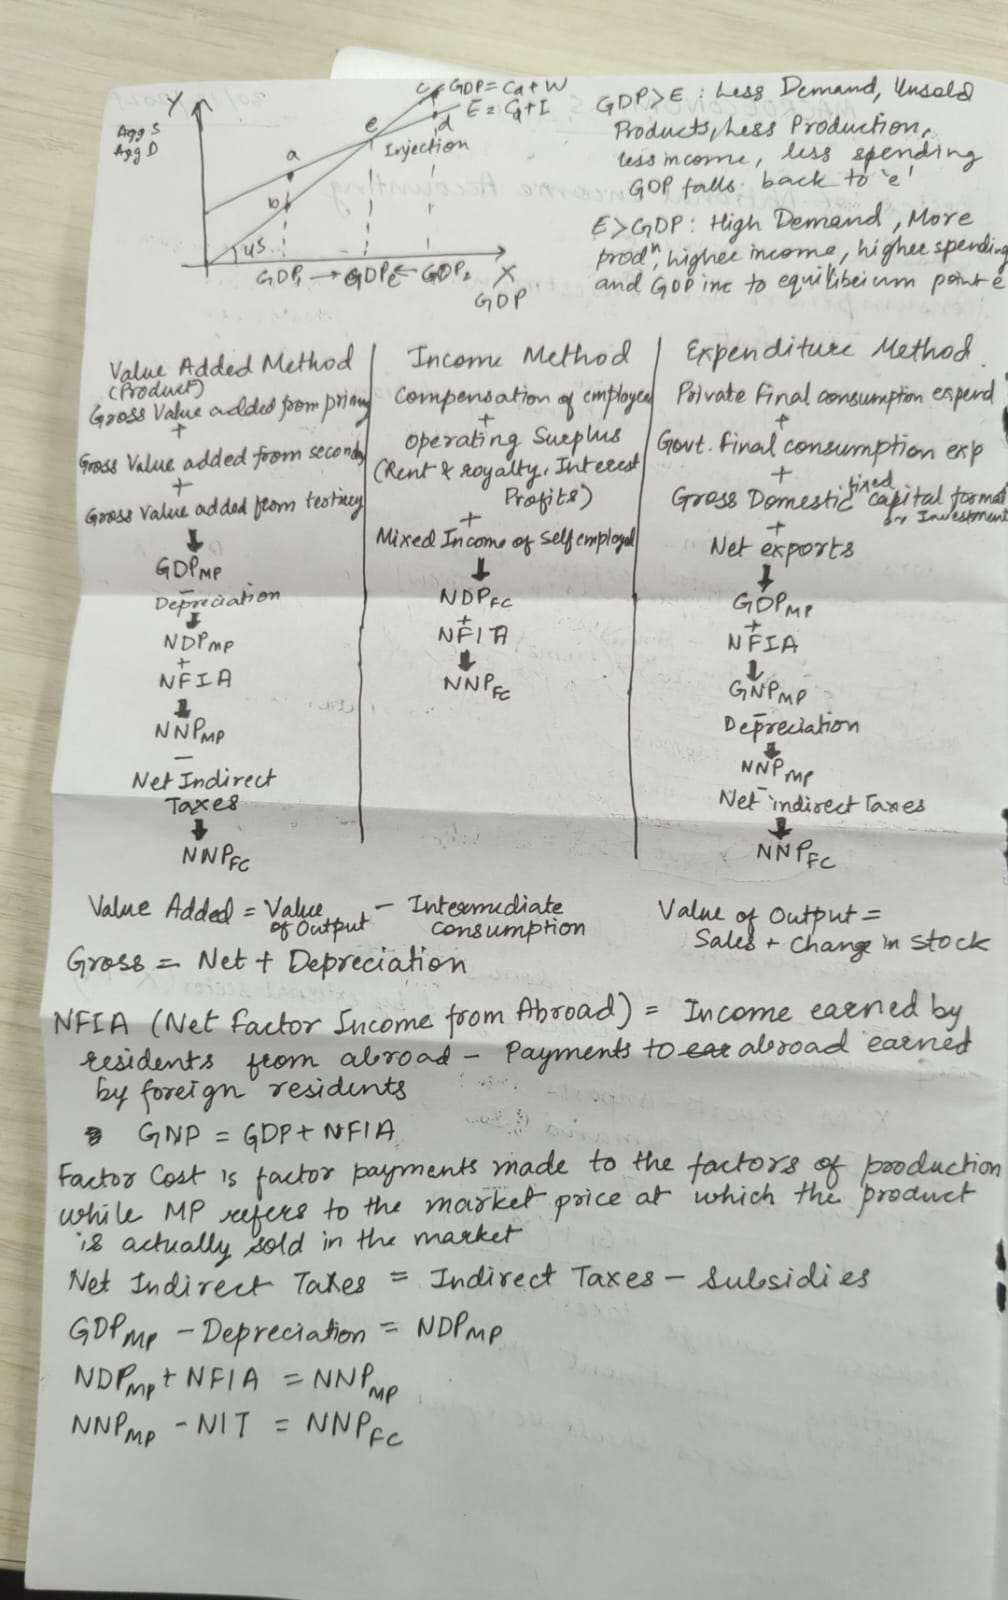 Y
Agg S
Agg D
a
b
e
c
d
GDP = Cd + W
E = Cd + I
Injection
45
GDP1 → GDPe ← GDP2
X
GDP
GDP>E : Less Demand, Unsold
Products, Less Production,
less income, less spending
GDP falls back to 'e'
E>GDP: High Demand, More
prodn, higher income, higher spending
and GDP inc to equilibrium point e
Value Added Method
(Product)
Gross Value added from primy
+
Gross Value added from secondy
+
Gross Value added from tertiary
↓
GDPMP
-
Depreciation
↓
NDPMP
+
NFIA
↓
NNPMP
-
Net Indirect
Taxes
↓
NNPFC
Income Method
Compensation of employee
+
operating Surplus
(Rent & royalty, Interest
Profits)
+
Mixed Income of Self employed
↓
NDPFC
+
NFITA
↓
NNPFC
Expenditure Method
Private Final consumption expend
+
Govt. final consumption exp
+
Gross Domestic fixed capital format
or Investment
+
Net exports
↓
GDPMP
+
NFIA
↓
GNPMP
-
Depreciation
↓
NNPMP
-
Net indirect Taxes
↓
NNPFC
Value Added = Value of Output - Intermediate consumption
Value of Output =
Sales + Change in stock
Gross = Net + Depreciation
NFIA (Net Factor Income from Abroad) = Income earned by
residents from abroad - Payments to abroad earned
by foreign residents
GNP = GDP + NFIA
Factor Cost is factor payments made to the factors of production
while MP refers to the market price at which the product
is actually sold in the market
Net Indirect Taxes = Indirect Taxes - Subsidies
GDPMP - Depreciation = NDPMP
NDPMP + NFIA = NNPMP
NNPMP - NIT = NNPFC